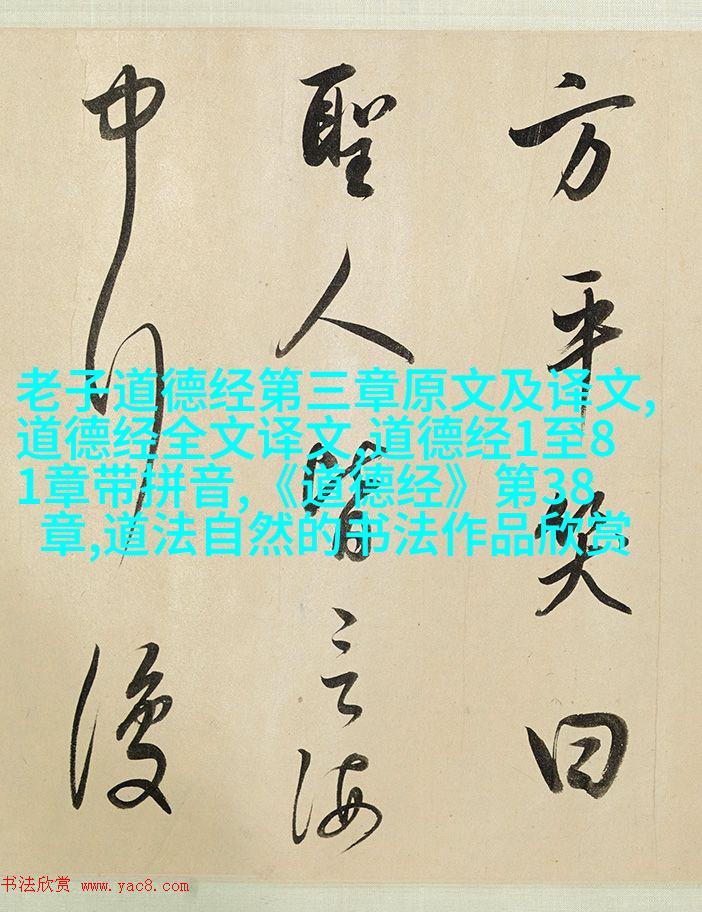 方平笑曰
聖人皆言海
中行復
老子道德经第三章原文及译文,
道德经全文译文,道德经1至8
1章带拼音,《道德经》第38
章,道法自然的书法作品欣赏
书法欣赏 www.yac8.com